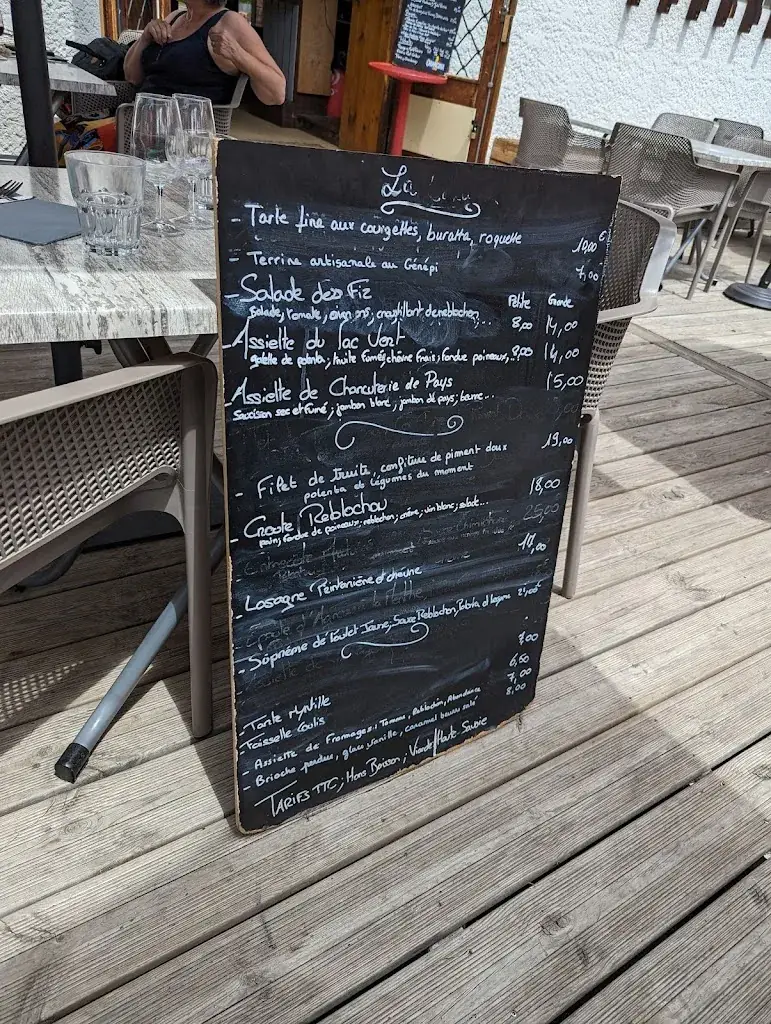 La
- Tarte fine aux courgettes, buratta, roquette 10,00 €
- Terrine artisanale au Génépi 7,00
Petite Grande
- Salade des Fiz 8,00 14,00
Salade, tomate, croustillant de reblochon...
- Assiette du lac Vert 9,00 14,00
galette de polenta, truite fumée, chèvre frais, fondue poireaux...
- Assiette de Charcuterie de Pays 15,00
Saucisson sec et fumé, jambon blanc, jambon de pays, beurre...
- Filet de truite, confiture de piment doux 19,00
polenta et légumes du moment
- Croûte Reblochon 18,00
pain, fondue de poireaux, reblochon, crème, vin blanc, salade...
25,00
- Lasagne Printanière et chèvre
- Suprême de Poulet Jaune, Sauce Reblochon, Polenta et légumes
- Tarte Myrtille 7,00
- Faisselle Coulis 6,50
- Assiette de Fromages: Tomme, Reblochon, Abondance 7,00
- Brioche perdue, glace vanille, caramel beurre salé 8,00
TARIFS TTC, Hors Boisson, Viande Haute Savoie